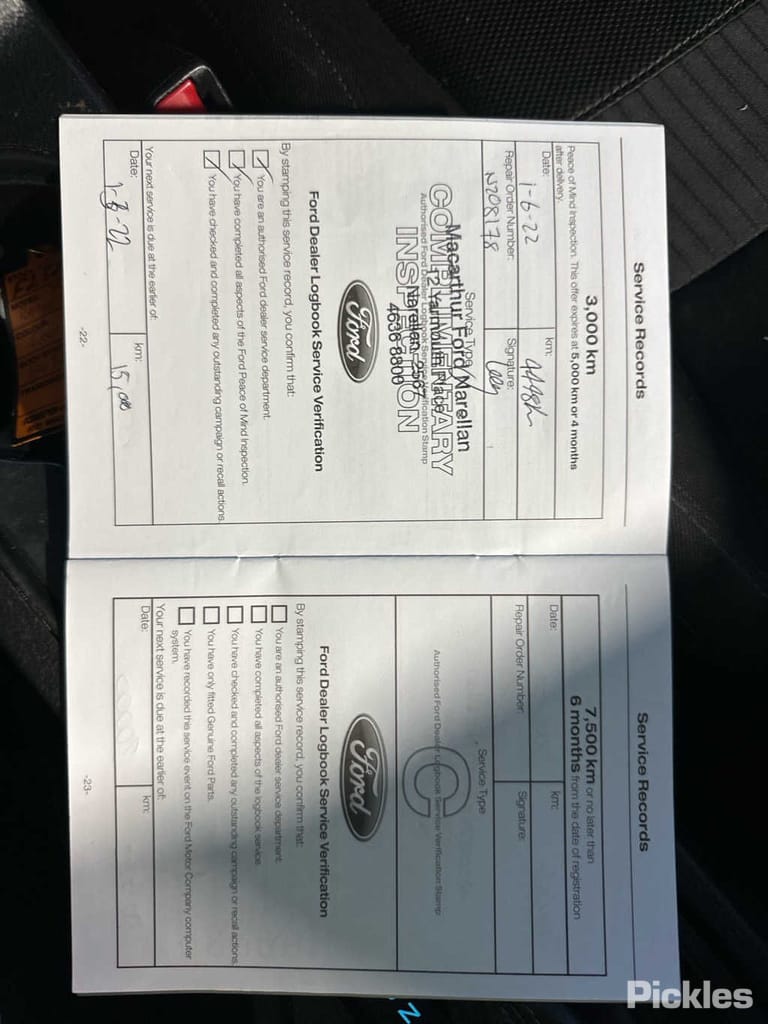 Service Records
3,000 km
Peace of Mind Inspection. This offer expires at 5,000 km or 4 months
after delivery.
Date:
km:
1-6-22
Repair Order Number:
Signature:
N208178
Service Type
COMPLIMENTARY
INSPECTION
Authorised Ford Dealer Logbook Service Verification Stamp
Macarthur Ford Narellan
12 Yarmouth Place
Narellan 2567
4636 8800
Ford
Ford Dealer Logbook Service Verification
By stamping this service record, you confirm that:
You are an authorised Ford dealer service department.
You have completed all aspects of the Ford Peace of Mind Inspection.
You have checked and completed any outstanding campaign or recall actions.
Your next service is due at the earlier of:
Date:
km:
15,000
-22-
Service Records
7,500 km or no later than
6 months from the date of registration
Date:
km:
Repair Order Number:
Signature:
Service Type
C
Authorised Ford Dealer Logbook Service Verification Stamp
Ford
Ford Dealer Logbook Service Verification
By stamping this service record, you confirm that:
You are an authorised Ford dealer service department.
You have completed all aspects of the logbook service.
You have checked and completed any outstanding campaign or recall actions.
You have only fitted Genuine Ford Parts.
You have recorded this service event on the Ford Motor Company computer
system.
Your next service is due at the earlier of:
Date:
km:
-23-
Pickles